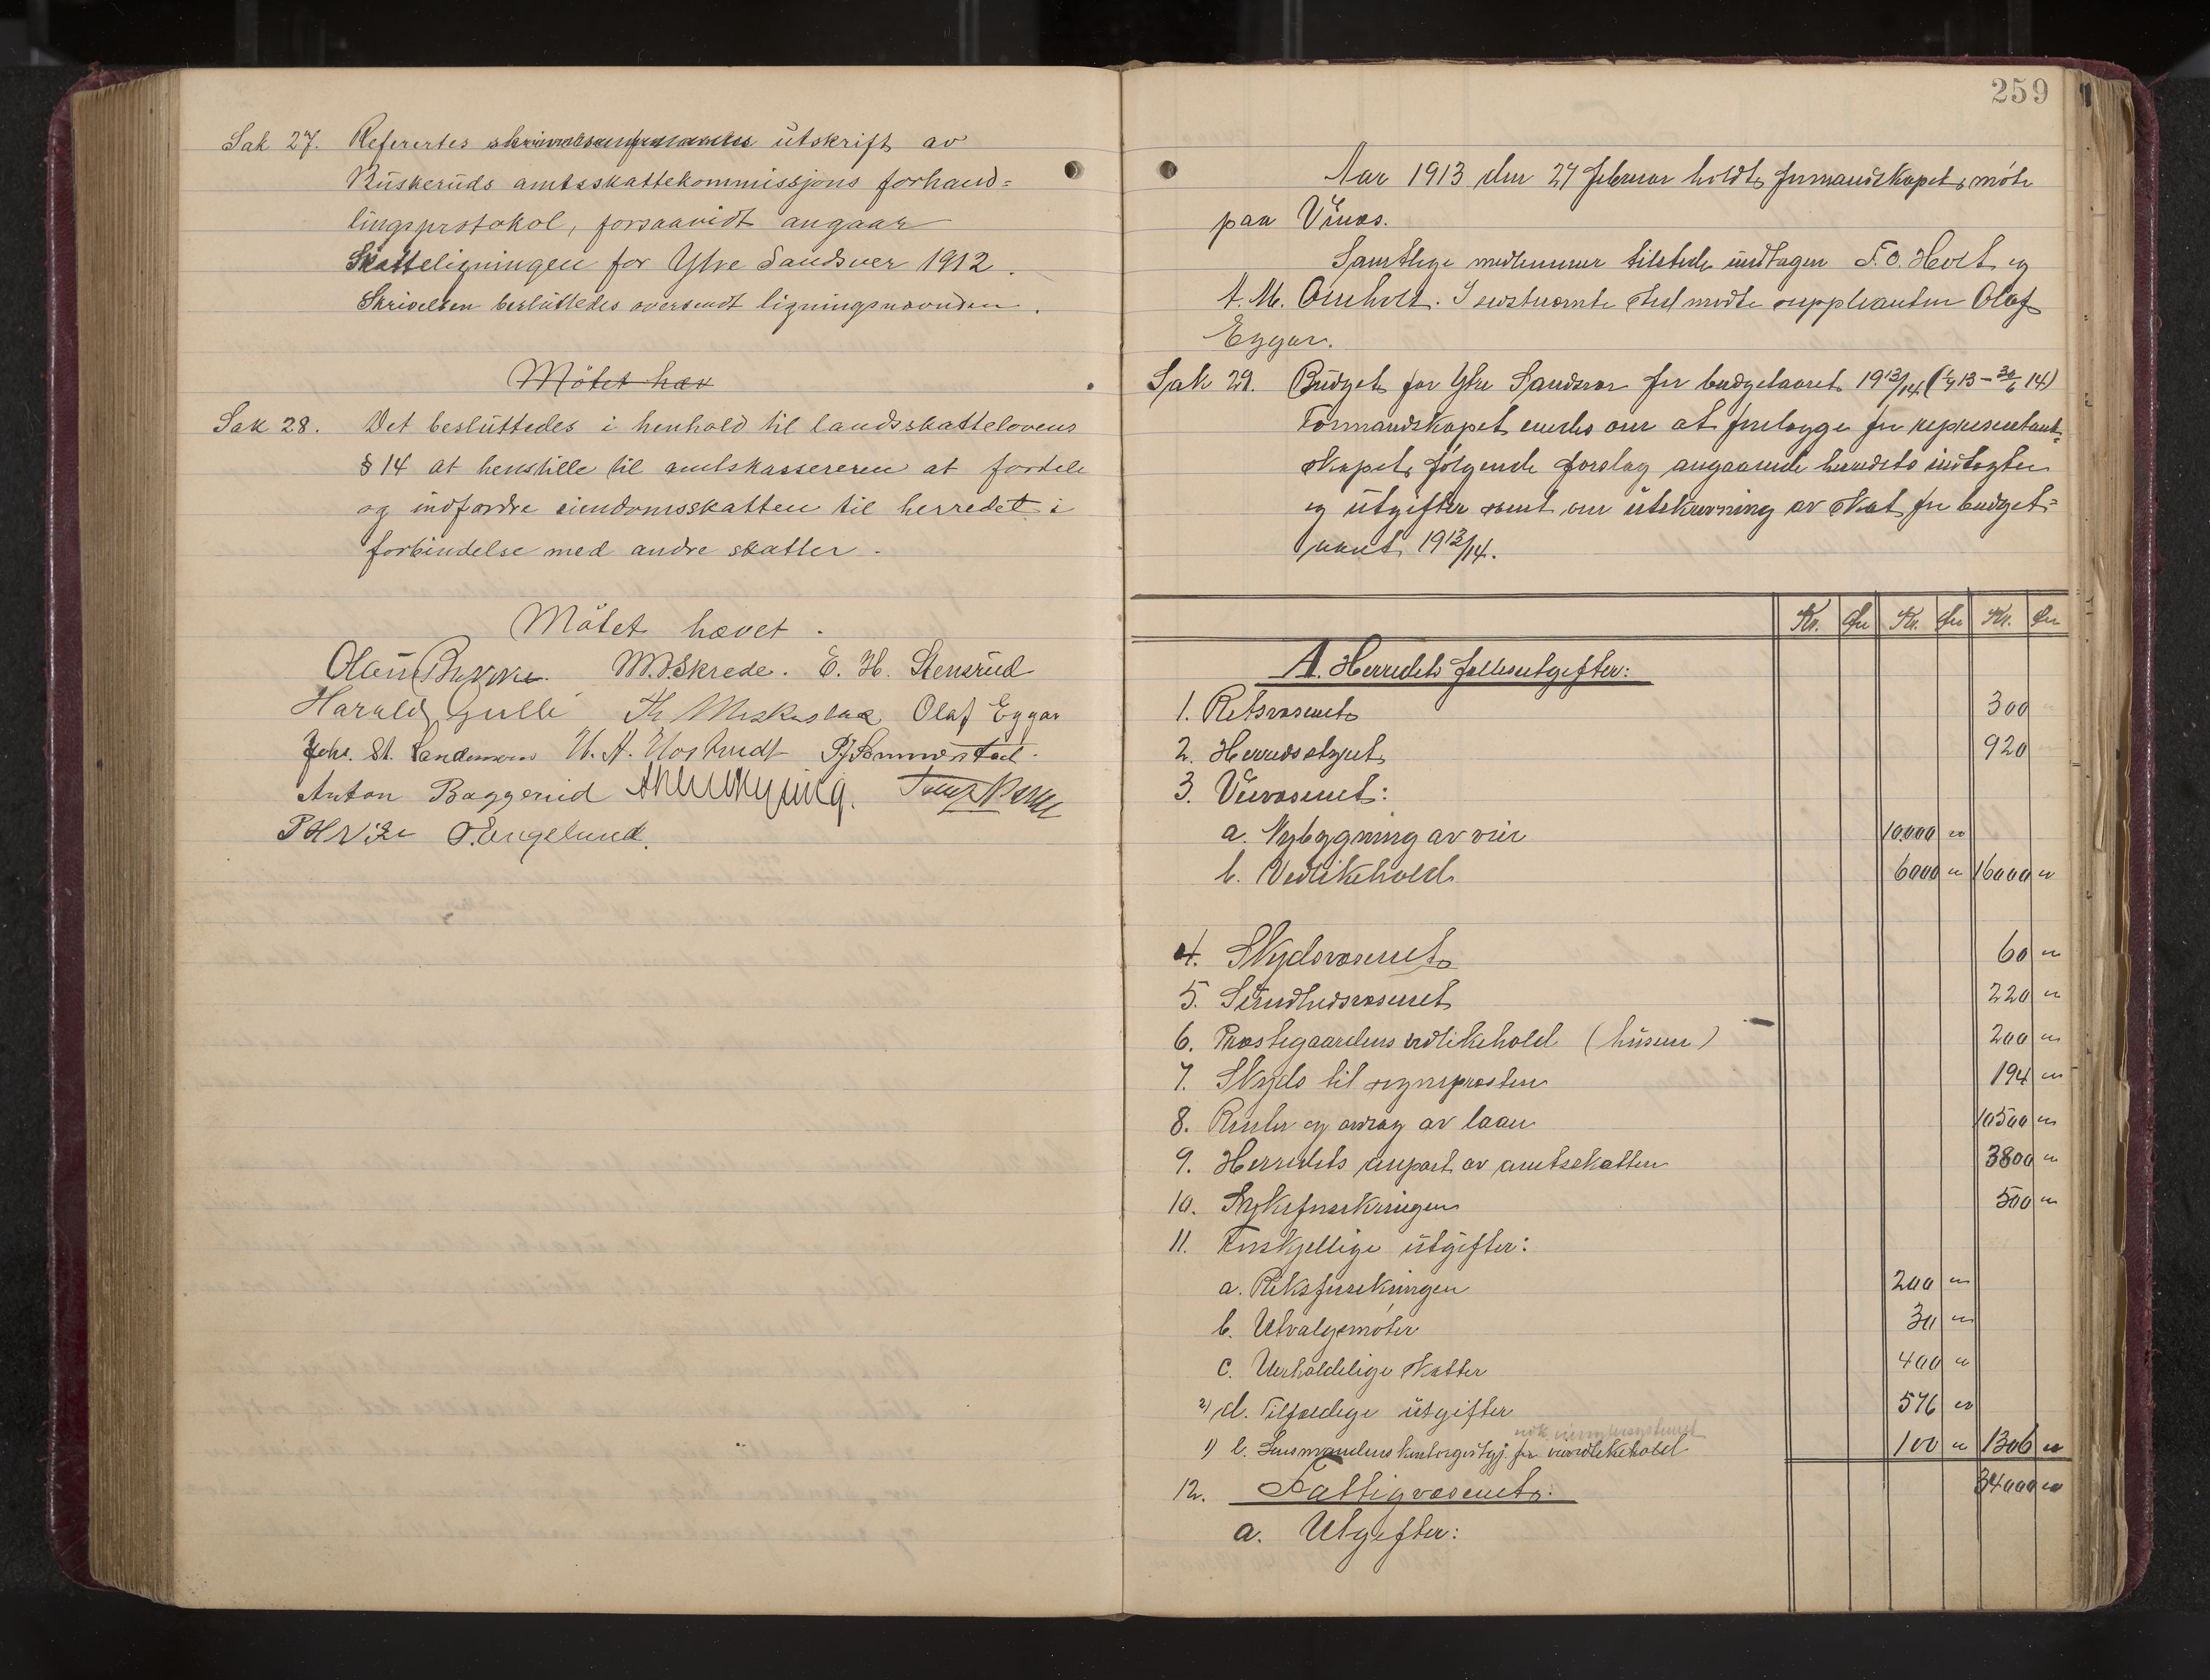 Sak 27. Refereres utskrift av
Buskeruds amtsskattekommissjons forhand=
lingsprotokol, forsaavidt angaar
Skatteligningen for Ytre Sandsver 1912.
Skrivelsen besluttedes oversendt ligningsnævnden.
Mötet hæv
Sak 28. Det besluttedes i henhold til landsskattelovens
§ 14 at henstille til amtskassereren at fordele
og indfordre eiendomsskatten til herredet i
forbindelse med andre skatter.
Mötet hævet.
Olaus Bukke. E. H. Stensrud
Harald Gulli Olaf Eggar
Johs. St. Sandsmoen
Anton Baggerud
O. Engelund.
259
Aar 1913 den 27 februar holdt formandskapet möte
paa Vinæs.
Samtlige medlemmer tilstede undtagen F. O. Hvolt og
A. M. Omholt. I sidstnævnte sted mødte suppleanten Olaf
Eggar.
Sak 29. Budget for Ytre Sandsvær for budgetaaret 1913/14 (1/7 13 - 30/6 14)
Formandskapet enedes om at forelægge for repræsentant=
skapet følgende forslag angaaende herredets indtægter
og utgifter samt om utskrivning av skat for budget=
aaret 1913/14.
Kr. Øre Kr. Øre Kr. Øre
A. Herredets fællesutgifter:
1. Retsvæsenet 300
2. Herredsstyret 920
3. Veivæsenet:
a. Nybygning av veier 10000 "
b. Vedlikehold 6000 " 16000 "
4. Skydsvæsenet 60 "
5. Sundhedsvæsenet 220 "
6. Præstegaardens vedlikehold (husene) 200 "
7. Skyds til sogneprosten 194 "
8. Renter og avdrag av laan 10500 "
9. Herredets anpart av amtsskatten 3800 "
10. Sykeforsikringen 500 "
11. Forskjellige utgifter:
a. Riksforsikringen 200 "
b. Utvalgsmøter 30 "
c. Uerholdelige skatter 400 "
2) d. Tilfældige utgifter 576 "
1) e. Lensmandens kontorgodtgj. for veivedlikehold 100 " 1306 "
34000 "
12. Fattigvæsenet:
a. Utgifter: